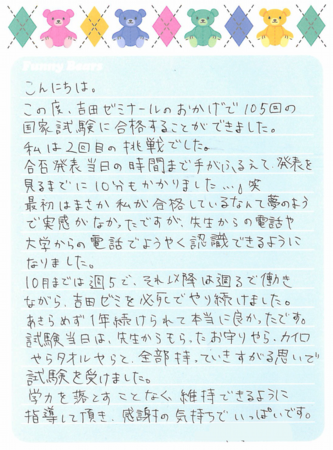 Funny Bears
こんにちは。
この度、吉田ゼミナールのおかげで105回の
国家試験に合格することができました。
私は2回目の挑戦でした。
合否発表当日の時間まで手がふるえて、発表を
見るまでに10分もかかりました...笑
最初はまさか私が合格しているなんて夢のよう
で実感がなかったですが、先生からの電話や
大学からの電話でようやく認識できるように
なりました。
10月までは週5で、それ以降は週3で働き
ながら、吉田ゼミを必死でやり続けました。
あきらめず1年続けられて本当に良かったです。
試験当日は、先生からもらったお守りやら、カイロ
やらタオルやらと、全部持っていきすがる思いで
試験を受けました。
学力を落とすことなく、維持できるように
指導して頂き、感謝の気持ちでいっぱいです。